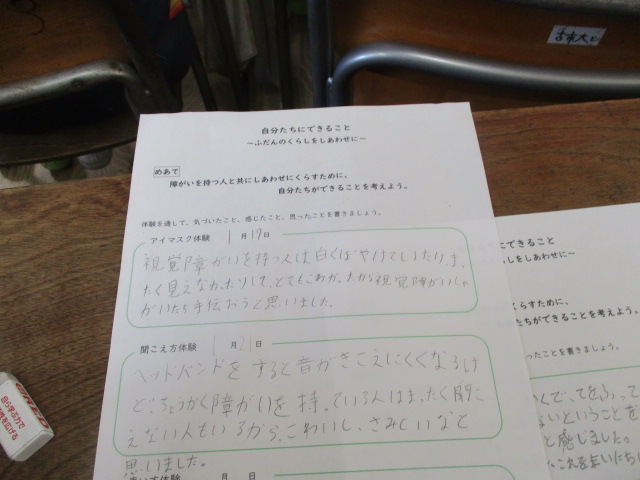 自分たちにできること
～ふだんのくらしをしあわせに～
めあて
障がいを持つ人と共にしあわせにくらすために、
自分たちができることを考えよう。
体験を通して、気づいたこと、感じたこと、思ったことを書きましょう。
アイマスク体験 1月19日
視覚障がいを持つ人は白くぼやけていたり、ま
たく見えなかったりして、とてもこわが 視覚障がいしゃ
がいたら手伝おうと思いました。
聞こえ方体験 1月21日
ヘッドバンドをすると音がきこえにくくなるけ
ど、ちょうかく障がいを持っている人はまったく聞こ
えない人もいるから、こわいし、さみしいなと
思いました。
体験 月 日
にできること
しをしあわせに～
くらすために、
たちができることを考えよう。
ったことを書きましょう。
んで、てをふって
ないということを
と感じました。
これをまいにち
自ら学ぶ力で